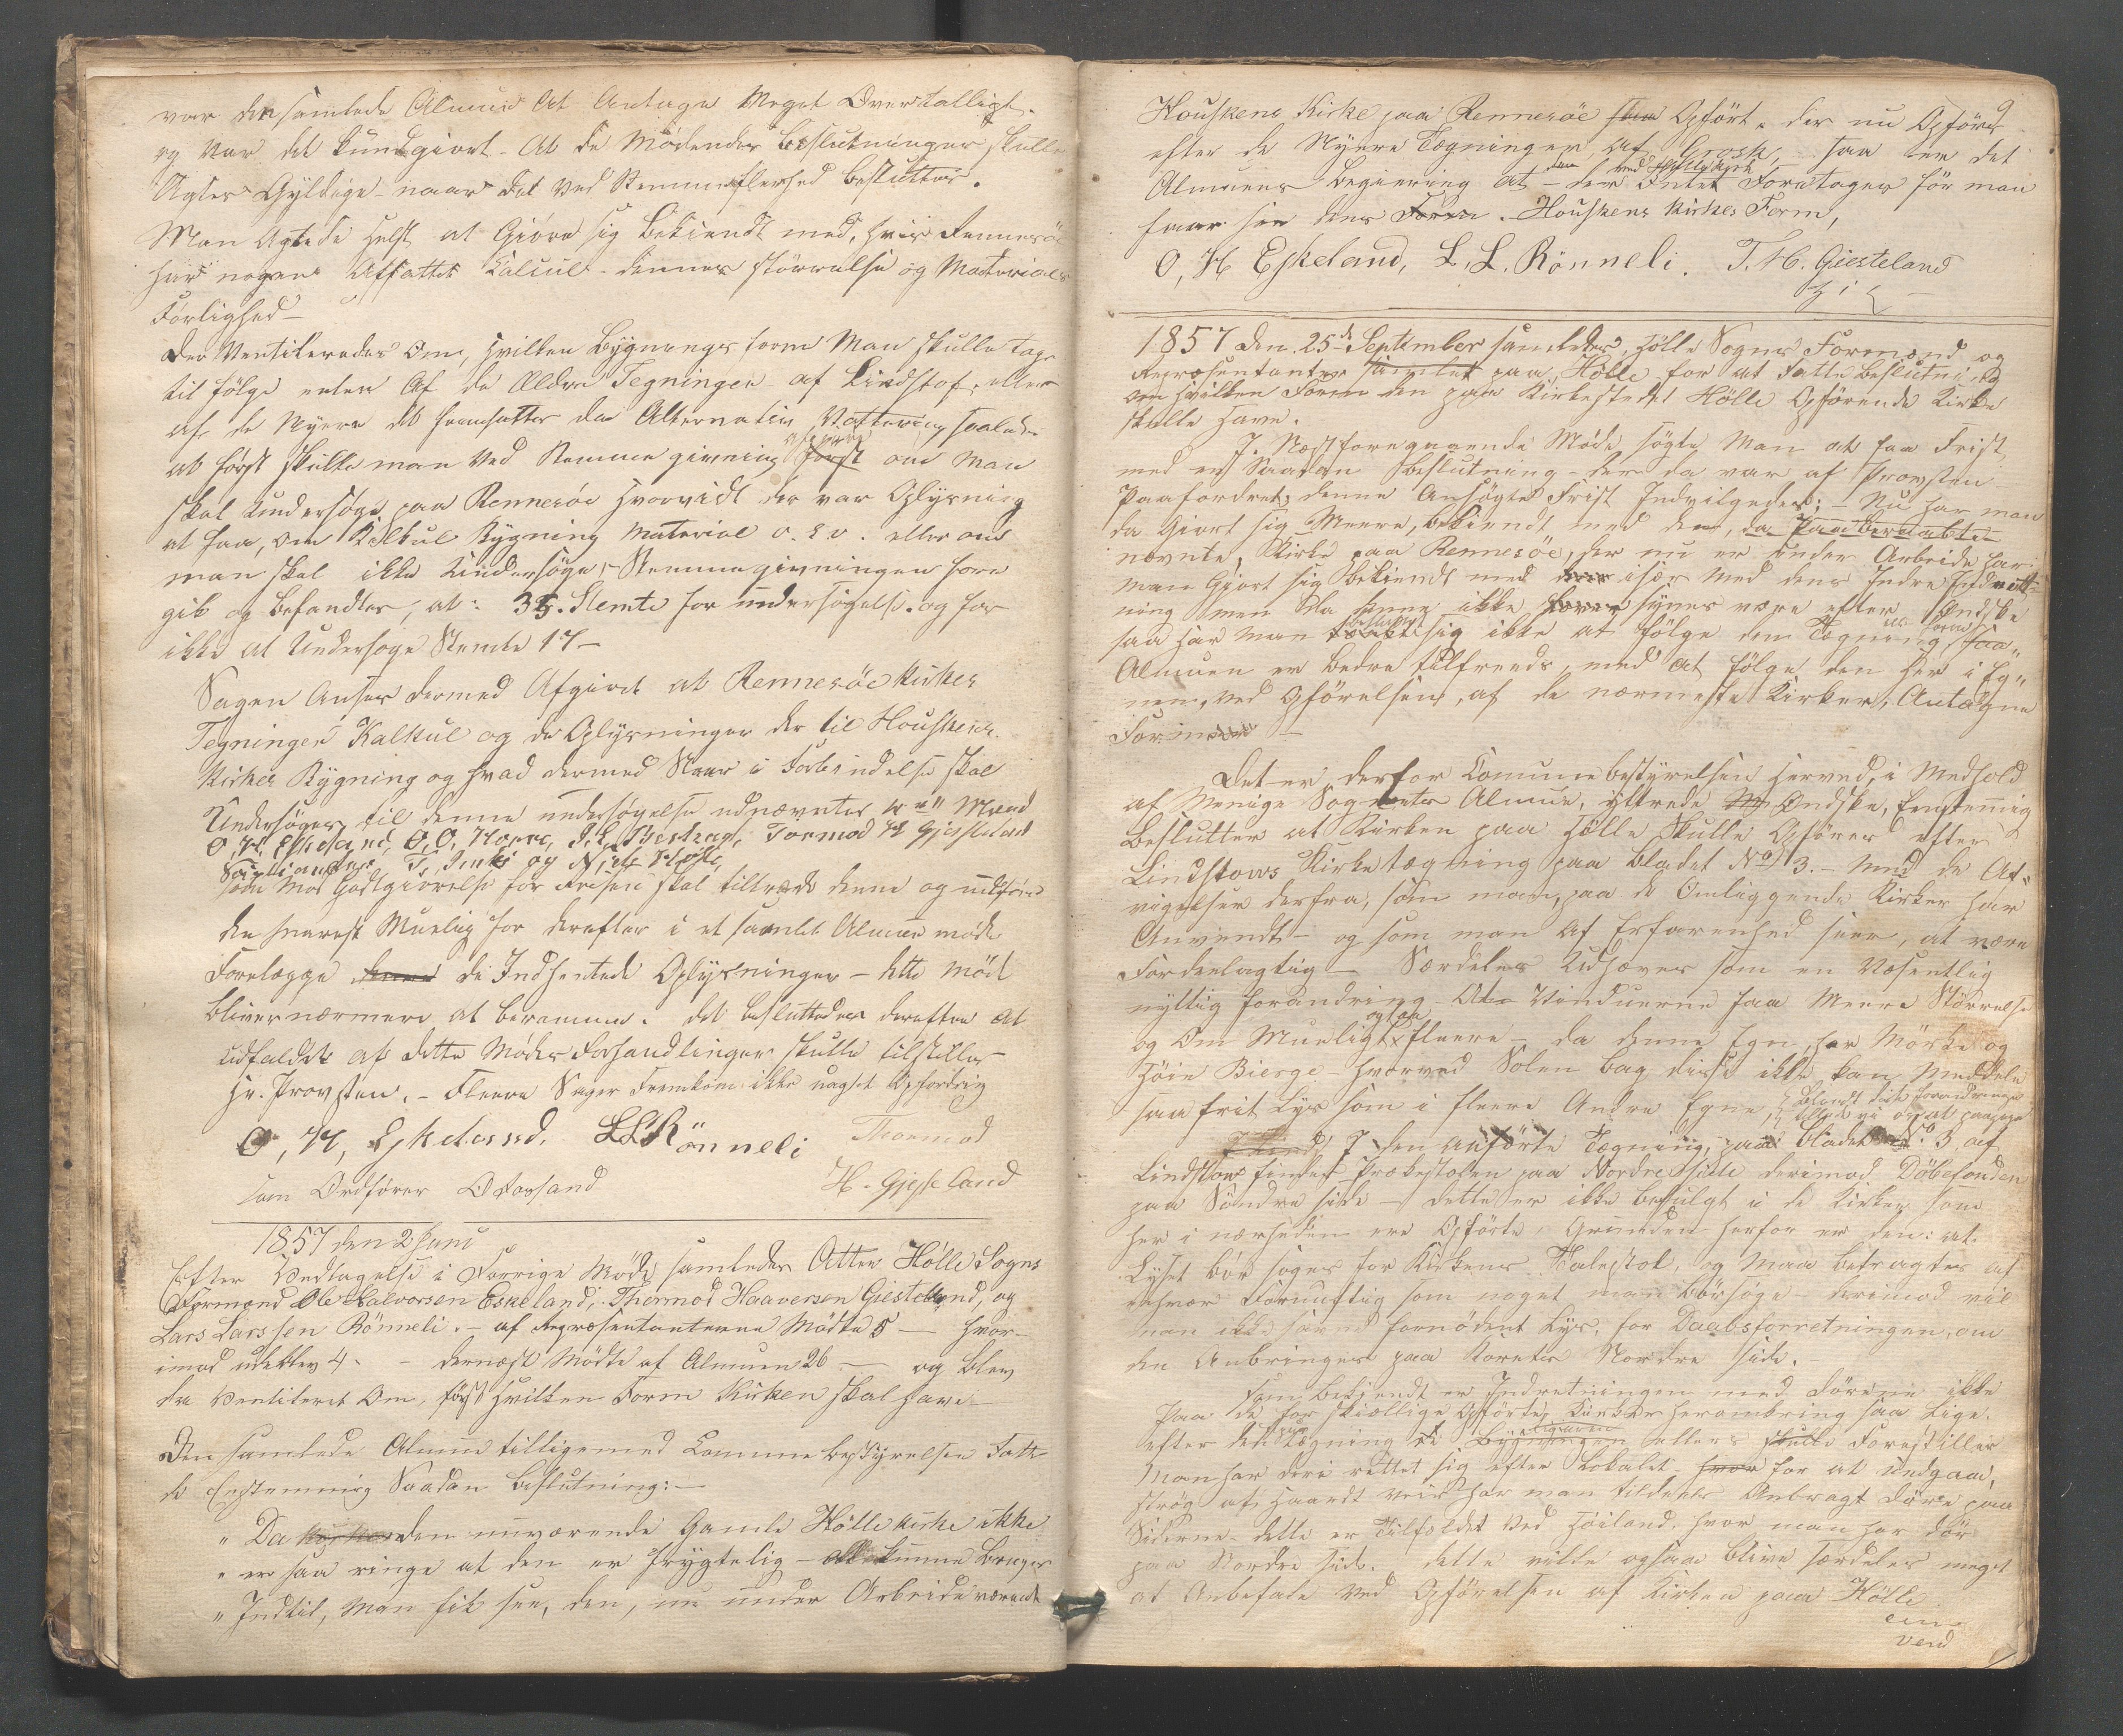 var den samlede Almue At Antage Meget Overtalligt.
og var det kundgiort. At de Mødendes Beslutninger skulle
Agtes Gyldige - naar det ved Stemmefleerhed besluttes.
Man Agtede helst at Giøre sig Bekiendt med, hvis Rennesöe
har nogen Affattet Calcul - dennes störrelse og Materials
Forlighed -
Der Ventileredes Om, hvilken Bygnings form Man skulle tage
til følge enten Af de Ældre Tegninger af Lindstof, eller
af de Nyere det fremsattes da Alternativ Vottering saaledes
at først skulle man ved Stemmegivning först om Man
skal Undersöge paa Rennesöe hvorvidt der var Oplysning
at faa, om Kalkul Bygning Material o. s. v. eller om
man skal ikke Undersöge, - Stemmegivningen fore
gik og befandtes, at: 35. Stemte for undersögelse. og for
ikke at Undersøge Stemte 17 -
Sagen Ansees dermed Afgiort at Rennesöe Kirkes
Tegninger Kalkul og de Oplysninger der til Houskens
Kirkes Bygning og hvad dermed Staar i Forbindelse skal
Undersöges, til denne undersøgelse udnævntes Mænd
O, H, Eskeland, O, O, Tormod H Gjesteland
T. og Niels
som Mod Godtgiørelse for Reisen skal tiltræde denne og udföre
den snarest Muelig for derefter i et samlet Almue møde
Forelægge de Indhentede Oplysninger - dette Møde
bliver nærmere at beramme. det besluttedes derefter at
Udfaldet af dette Mødes Forhandlinger skulle tilstilles
Hr. Provsten. - Fleere Sager Fremkom ikke uagtet Opfordring
O, H, Eskeland. LLRönneli Thormod
som Ordfører O Forsand H. Gjesteland
1857 den 2 Juni
Efter Vedtagelse i Forrige Møde samledes Atter Hölle Sogns
Formænd Ole Halvorsen Eskeland, Thormod Haaversen Giesteland, og
Lars Larssen Rönneli. - af Repræsentanterne Mödte 5 - hvor-
imod udeblev 4. - dernæst Mödte af Almuen 26 - og blev
da Ventileret Om, først hvilken Form Kirken skal have
Den samlede Almue tilligemed Commune bestyrelsen Fatte-
de Enstemmig Saadan Beslutning: -
" Da den nuværende Gamle Hölle Kirke ikke
" er saa ringe at den er frygtelig - kunne Bruges
" Indtil, Man fik see, den, nu under Arbeide værende
9
Houskens Kirke paa Rennesöe Opført. der nu Opføres
efter de Nyere Tegninger af Grosk, - saa er det
Almuens Begiering at - der Intet Foretages för man
faar see dens Form. Houskens Kirkes Form,
O, H Eskeland, L. L. Rönneli. T. H. Giesteland
1857 den 25de September samledes, Hölle Sogns Formænd og
Repræsentanter samlet paa Hölle for at Fatte Beslutning
om hvilken Form den paa Kirkestedet Hölle Opförende Kirke
skulle have.
I Næstforegaaende Møde søgte Man at faa Frist
med en Saadan Beslutning - der da var af Provsten
Paafordret, denne Ansøgte Frist Indvilgedes: - Nu har man
da Giort sig Meere, bekiendt med den, da Paaberaabte
nevnte, Kirke paa Rennesöe, der nu er under Arbeide har
man Giort sig Bekiendt med især Med dens Indre Indret-
ning men da denne ikke synes være efter Ønske
saa har man besluttet sig ikke at følge den Tegning, form, saa"
Almuen er Bedre tilfreds, med at følge den her i Eg"
nen, ved Opførelsen, af de nærmeste Kirker, Antagne
Form -
Det er derfor Communebestyrelsen herved, i Medhold
af Menige Sognets Almue, yttrede Ønske, Enstemmig
Beslutter at Kirken paa Hölle Skulle Opføres efter
Lindstows Kirketegning paa Bladet No 3. - med de Af-
vigelser derfra, som man paa de Omliggende Kirker har
Anvendt - og som man Af Erfarenhed seer, at være
Fordeelagtig - Særdeles Udhæves som en Væsentlig
nyttig forandring - At Vinduerne faa Meere Störrelse
og Om Mueligt ogsaa fleere - da denne Egn har Mörke og
Höie Bierge - hvorved Solen bag disse ikke kan Meddele
saa frit Lys som i fleere Andre Egne,
I den anførte Tegning, paa Bladet No. 3 af
Lindstow findes Prækestolen paa Nordre Side derimod Döbefonden
paa Söndre side - dette er ikke befulgt i de Kirker som
her i nærheden ere Opførte, Grunden herfor er den: at
Lyset bør søges for Kirkens Talestol, og Maa betragtes af
enhver Fornuftig som noget man bør søge - derimod vil
man ikke savne fornødent Lys, for Daabsforretningen, om
den Anbringes paa Korets Nordre Side. -
Som bekiendt er Indretningen med Dörene ikke
paa de forskiellige Opførte Kirker heromkring saa Lige
efter den Tegning ellers skulle Forestiller
Man har deri rettet sig efter Lokalet for at undgaae,
strøg af haardt Veir har man tildeels Anbragt döre paa
Siderne - dette er Tilfeldet ved Höiland. hvor man har dör
paa Nordre Side. dette ville ogsaa blive særdeles meget
at Anbefale ved Opførelsen af Kirken paa Hölle.
om
vend